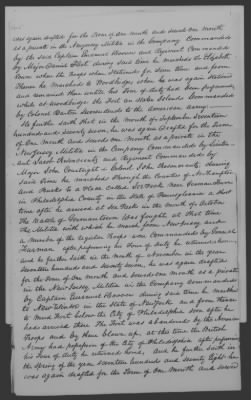 was again drafted for the Term of One month and served One Month
as a private in the New Jersey Militia in the Company Commanded
by the said Captain and Regiment Commanded
by Major Daniel during said time he marched to Elizabeth
Town where the troops where Stationed for some time and from
Thence he marched to Woodbridge where he was again stationed
and remained there untill his Term of duty had been performed
while at Woodbridge the Fort on Staten Island Commanded
by Colonel Barton surrendered to the American army.
He further saith that in the month of September Seventeen
hundred and Seventy Seven, he was again drafted for the Term
of One Month and served One Month as a private in the
New Jersey Militia in the Company Commanded by
Jacob and Regiment Commanded by
Major John and Colonel John during
said time he marched through the Counties of
and Bucks to a place called Six Rock near Germantown
in Philadelphia County in the State of Pennsylvania a short
time after he arrived at Six Rock in the month of October
the Battle of Germantown was fought, at that time
The Militia with which he marched from New Jersey and
a number of the regular troops were Commanded by General
after performing his Term of duty he returned home
and he further saith in the month of November in the year
Seventeen hundred and Seventy Seven, he was again drafted
for the Term of One month and served One month as a private
in the New Jersey Militia in the Company Commanded
by Captain during said time he marched
to in the State of New York and from thence
to Mud Fort below the City of Philadelphia soon after he
had arrived there The Fort was abandoned by the American
Troops and by them blown up, at this time the British
Army had possession of the City of Philadelphia after performing
his Term of duty he returned home, and he further saith in
the Spring of the year Seventeen hundred and Seventy Eight he
was again drafted for the Term of One Month and served